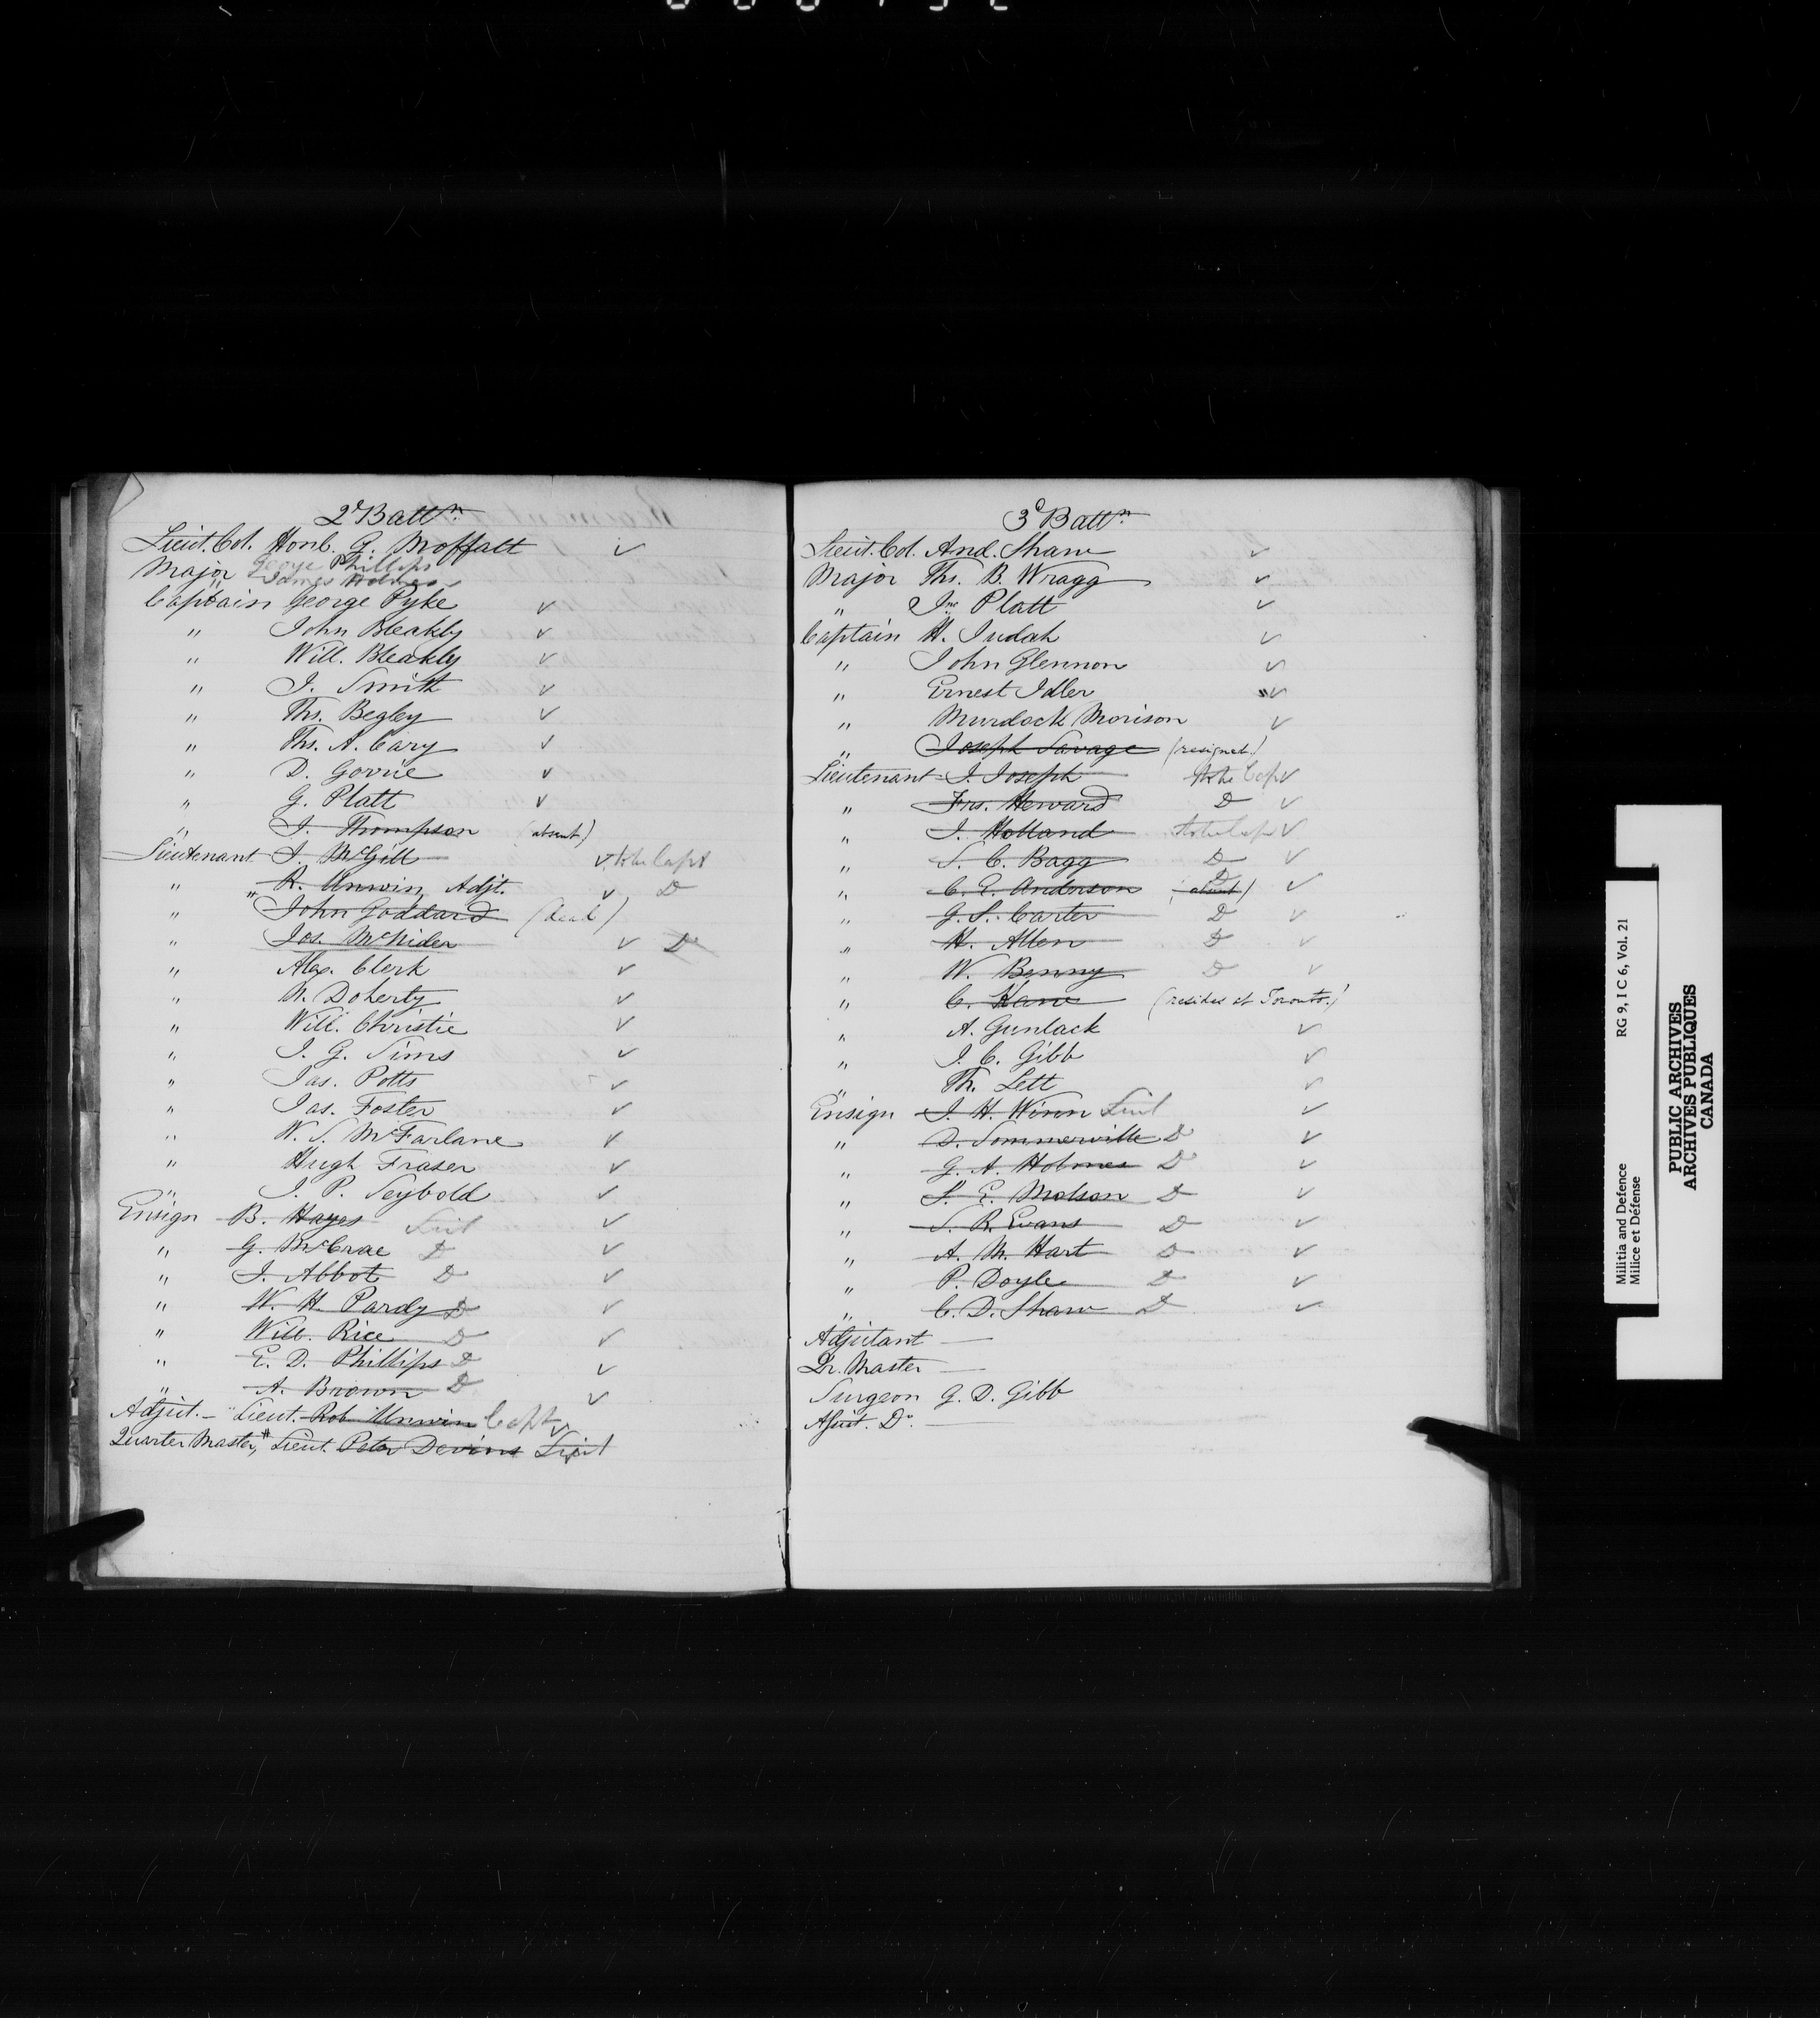 2d Battn.
Lieut. Col. Honb. G. Moffatt ✓
Major George Phillips
" James Holmes
Captain George Pyke ✓
" John Bleakly ✓
" Will. Bleakly ✓
" J. Smith ✓
" Ths. Begley ✓
" Ths. A. Cary ✓
" D. Gorrie ✓
" G. Platt ✓
" J. Thompson (absent)
Lieutenant J. McGill ✓ to be Capt
" R. Unwin, Adjt. ✓ D
" John Goddard (dead)
" Jos. McNider ✓ D
" Alex. Clerk ✓
" W. Doherty ✓
" Will. Christie ✓
" J. G. Sims ✓
" Jas. Potts ✓
" Jas. Foster ✓
" W. S. McFarlane ✓
" Hugh Fraser ✓
" J. P. Seybold ✓
Ensign B. Hayes Lieut ✓
" G. McCrae D ✓
" J. Abbot D ✓
" W. H. Pardy D ✓
" Will. Rice D ✓
" E. D. Phillips D ✓
" A. Brown D ✓
Adjut. - Lieut. Rob. Unwin Capt ✓
Quarter Master, Lieut. Peter Devins Lieut
3d Battn.
Lieut. Col. And. Shaw ✓
Major Ths. B. Wragg ✓
" Jno. Platt ✓
Captain H. Judah ✓
" John Glennon ✓
" Ernest Idler ✓
" Murdock Morison ✓
" Joseph Savage (resigned)
Lieutenant J. Joseph to be Capt ✓
" Frs. Heward D ✓
" J. Holland to be Capt ✓
" S. C. Bagg D ✓
" C. E. Anderson (absent) D ✓
" G. S. Carter D ✓
" H. Allen D ✓
" W. Benny D ✓
" C. Kane (resides at Toronto.)
" A. Gunlack ✓
" J. C. Gibb ✓
" Th. Lett ✓
Ensign J. H. Winn Lieut ✓
" D. Sommerville D ✓
" G. A. Holmes D ✓
" S. E. Molson D ✓
" S. R. Evans D ✓
" A. M. Hart D ✓
" P. Doyle D ✓
" C. D. Shaw D ✓
Adjutant —
Qr. Master —
Surgeon G. D. Gibb
Assist. Do. —
Militia and Defence RG 9, I C 6, Vol. 21
Milice et Défense
PUBLIC ARCHIVES
ARCHIVES PUBLIQUES
CANADA